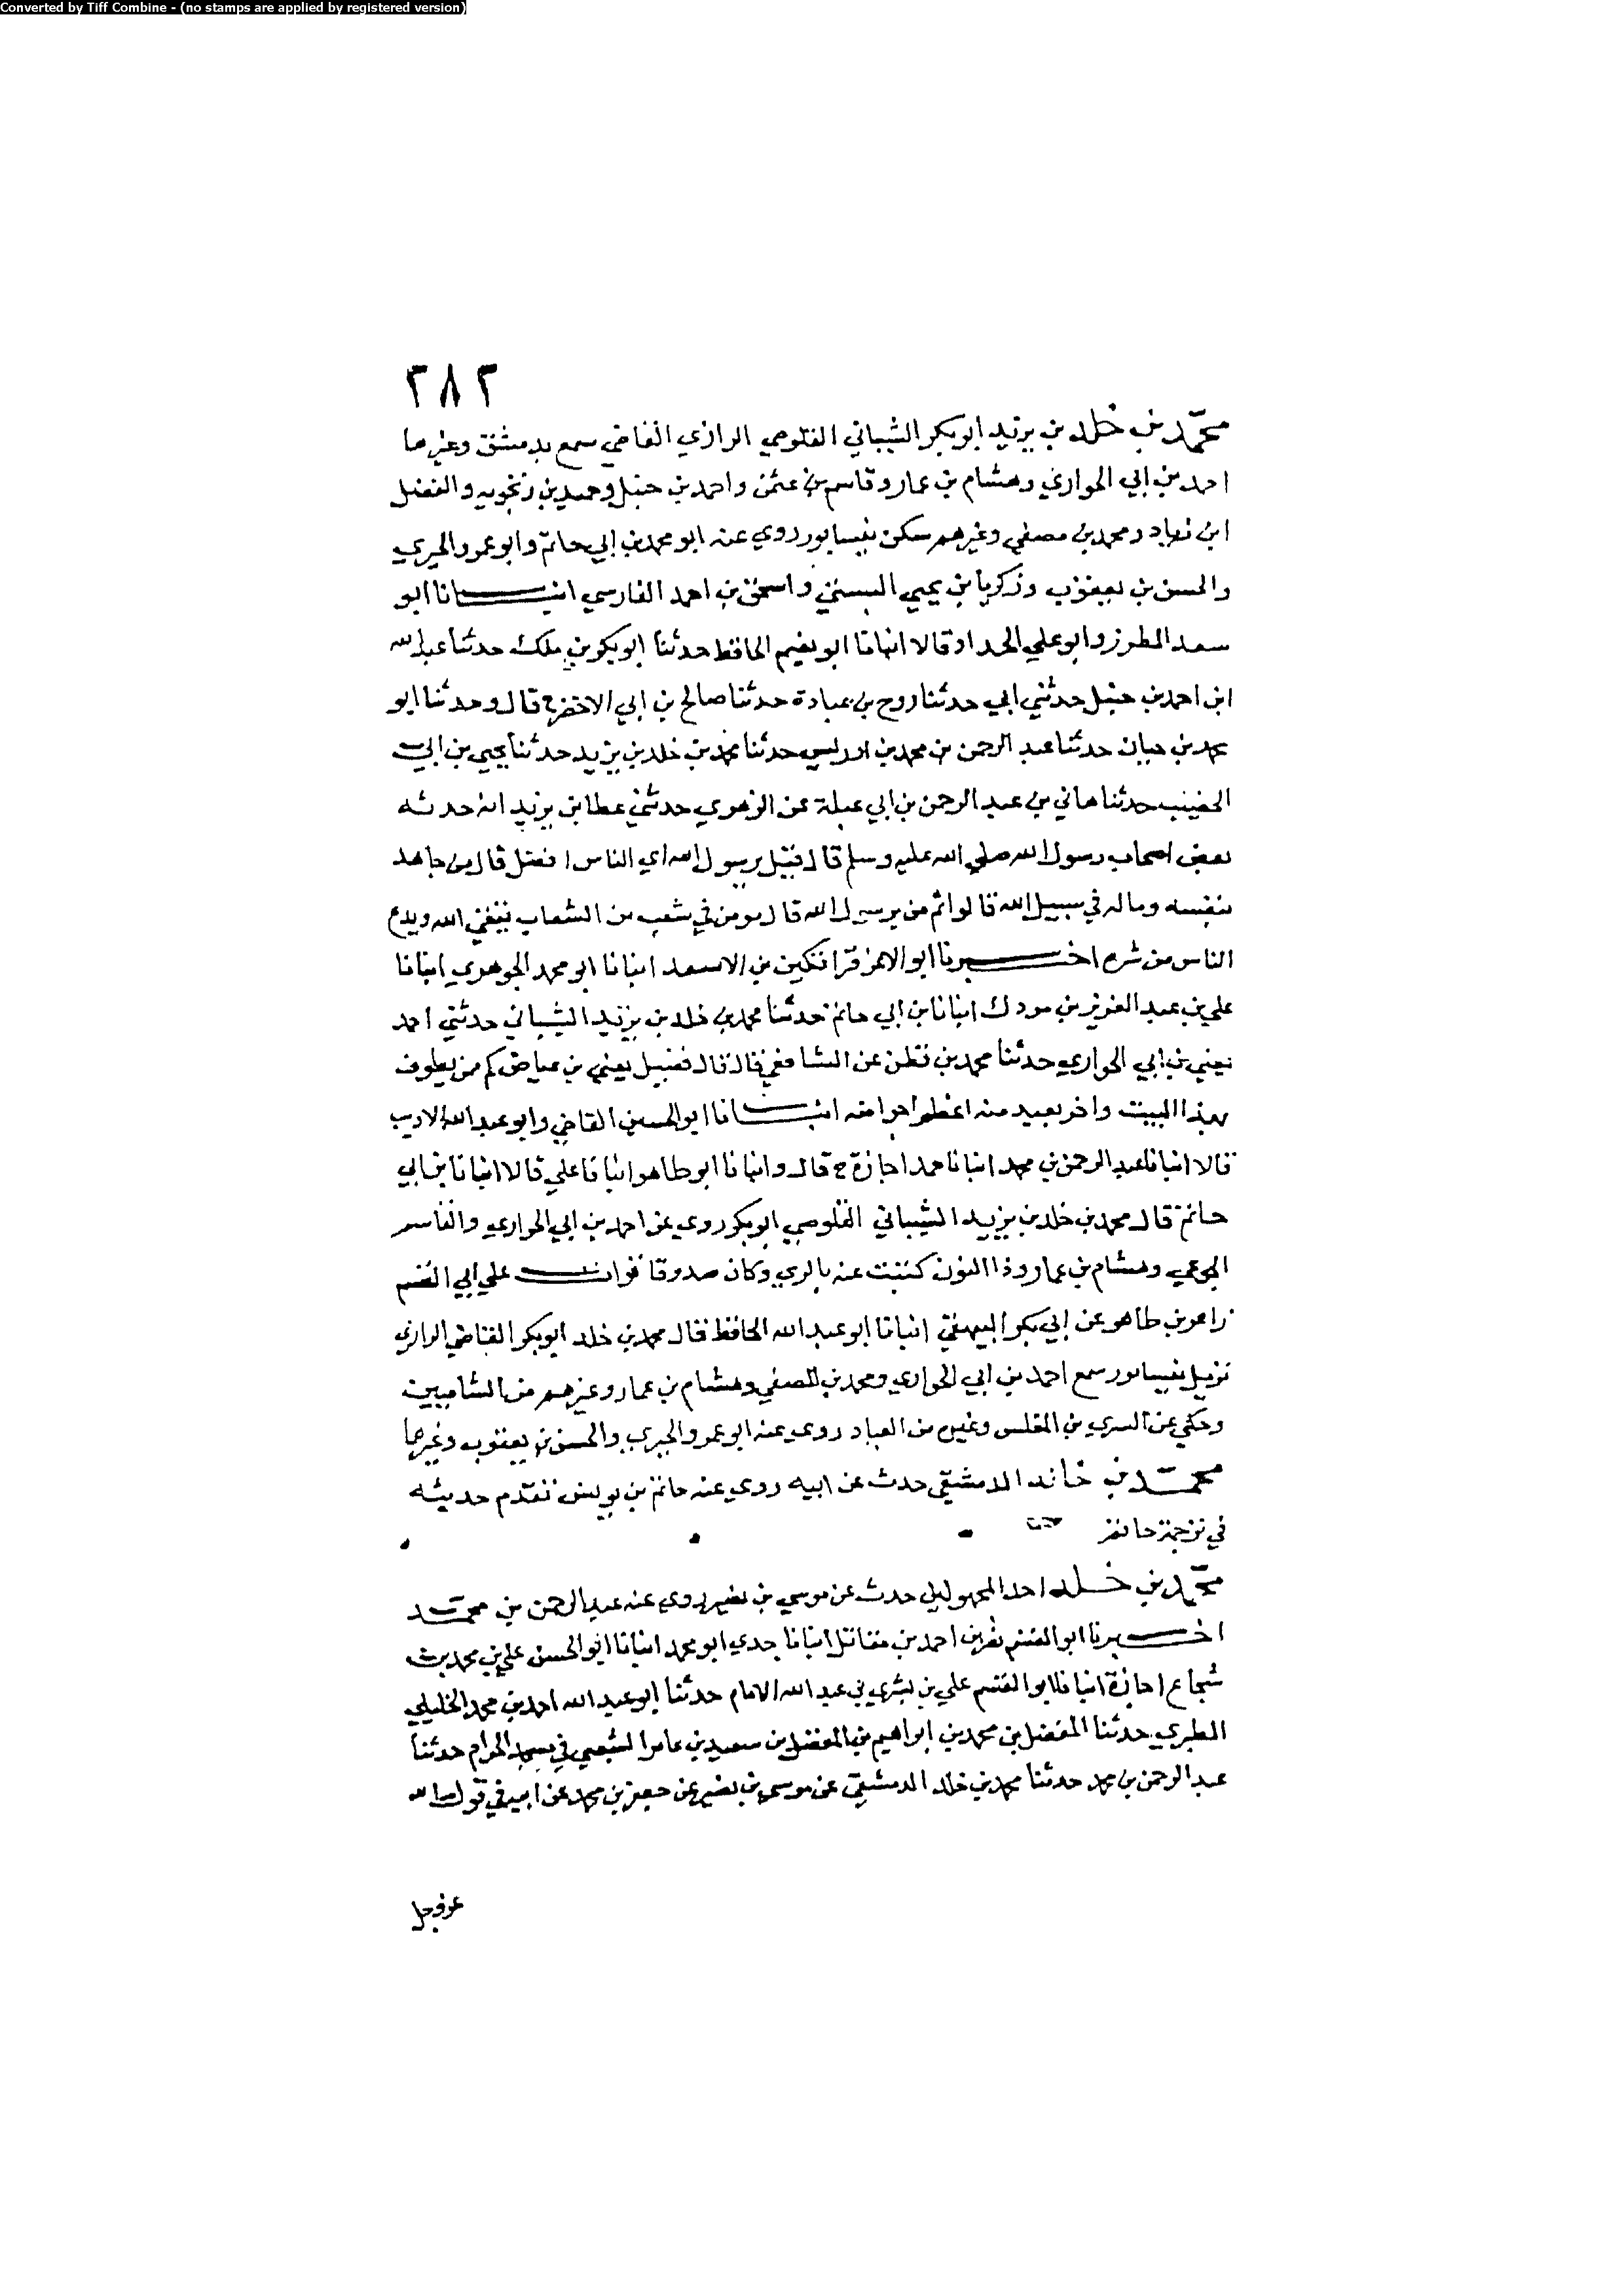 Converted by Tiff Combine - (no stamps are applied by registered version)
٢٨٢
محمد بن خلد بن يزيد ابوبكر الشيباني القلوصي الرازي القاضي سمع بدمشق وغيرها
احمد بن ابي الحواري وهشام بن عمار وقاسم بن عثمن واحمد بن حنبل وحميد بن زنجويه والفضل
ابن زياد ومحمد بن مصفي وغيرهم سكن نيسابور روي عنه ابو محمد بن ابي حاتم وابو عمرو الحيري
والحسن بن يعقوب وزكريا بن يحيي البستي واسحق بن احمد الفارسي انبـــانا ابو
سعد المطرز وابو علي الحداد قالا انبانا ابو نعيم الحافظ حدثنا ابوبكر بن ملك حدثنا عبد الله
ابن احمد بن حنبل حدثني ابي حدثنا روح بن عبادة حدثنا صالح بن ابي الاخضر ح قال وحدثنا ابو
محمد بن حيان حدثنا عبد الرحمن بن محمد بن ادريس حدثنا محمد بن خلد بن يزيد حدثنا يحيي بن ابي
الخصيب حدثنا هاني بن عبد الرحمن بن ابي عبلة عن الزهري حدثني عطا بن يزيد انه حدثه
بعض اصحاب رسول الله صلي الله عليه وسلم قال قيل يرسول الله اي الناس افضل قال من جاهد
بنفسه وماله في سبيل الله قالوا ثم من يرسول الله قال مومن في شعب من الشعاب يتقي الله ويدع
الناس من شره اخـــبرنا ابو الاعز قراتكين بن الاسعد انبانا ابو محمد الجوهري انبانا
علي بن عبد العزيز بن مردك انبانا بن ابي حاتم حدثنا محمد بن خلد بن يزيد الشيباني حدثني احمد
يعني بن ابي الحواري حدثنا محمد بن قطن عن الشافعي قال قال فضيل يعني بن عياض كم من يطوف
بهذا البيت واخر بعيد منه اعظم اجرا منه انبـــانا ابو الحسين القاضي وابو عبد الله الاديب
قالا انبانا عبد الرحمن بن محمد انبانا حمد اجازة ح قال وانبانا ابو طاهر انبانا علي قالا انبانا بن ابي
حاتم قال محمد بن خلد بن يزيد الشيباني القلوصي ابوبكر روي عن احمد بن ابي الحواري والقاسم
الجوعي وهشام بن عمار وذا النون كتبت عنه بالري وكان صدوقا قرات علي ابي القسم
زاهر بن طاهر عن ابي بكر البيهقي انبانا ابو عبد الله الحافظ قال محمد بن خلد ابوبكر القاضي الرازي
نزيل نيسابور سمع احمد بن ابي الحواري ومحمد بن المصفي وهشام بن عمار وغيرهم من الشاميين
وحكي عن السري بن المغلس وغيره من العباد روي عنه ابو عمرو الحيري والحسن بن يعقوب وغيرهما
محمد بن خالد الدمشقي حدث عن ابيه روي عنه حاتم بن يونس تقدم حديثه
في ترجمة حاتم
محمد بن خلد احد المجهولين حدث عن موسي بن نصير روي عنه عبد الرحمن بن محمد
اخـــبرنا ابو القسم نصر بن احمد بن مقاتل انبانا جدي ابو محمد انبانا ابو الحسن علي بن محمد بن
شجاع اجازة انبانا ابو القسم علي بن بشري بن عبد الله الامام حدثنا ابو عبد الله احمد بن محمد الخليلي
الطبري حدثنا المفضل بن محمد بن ابراهيم بن المفضل بن سعيد بن عامر الشعبي في مسجد الحرام حدثنا
عبد الرحمن بن محمد حدثنا محمد بن خلد الدمشقي عن موسي بن نصير عن جعفر بن محمد عن ابيه في قول الله
عز وجل